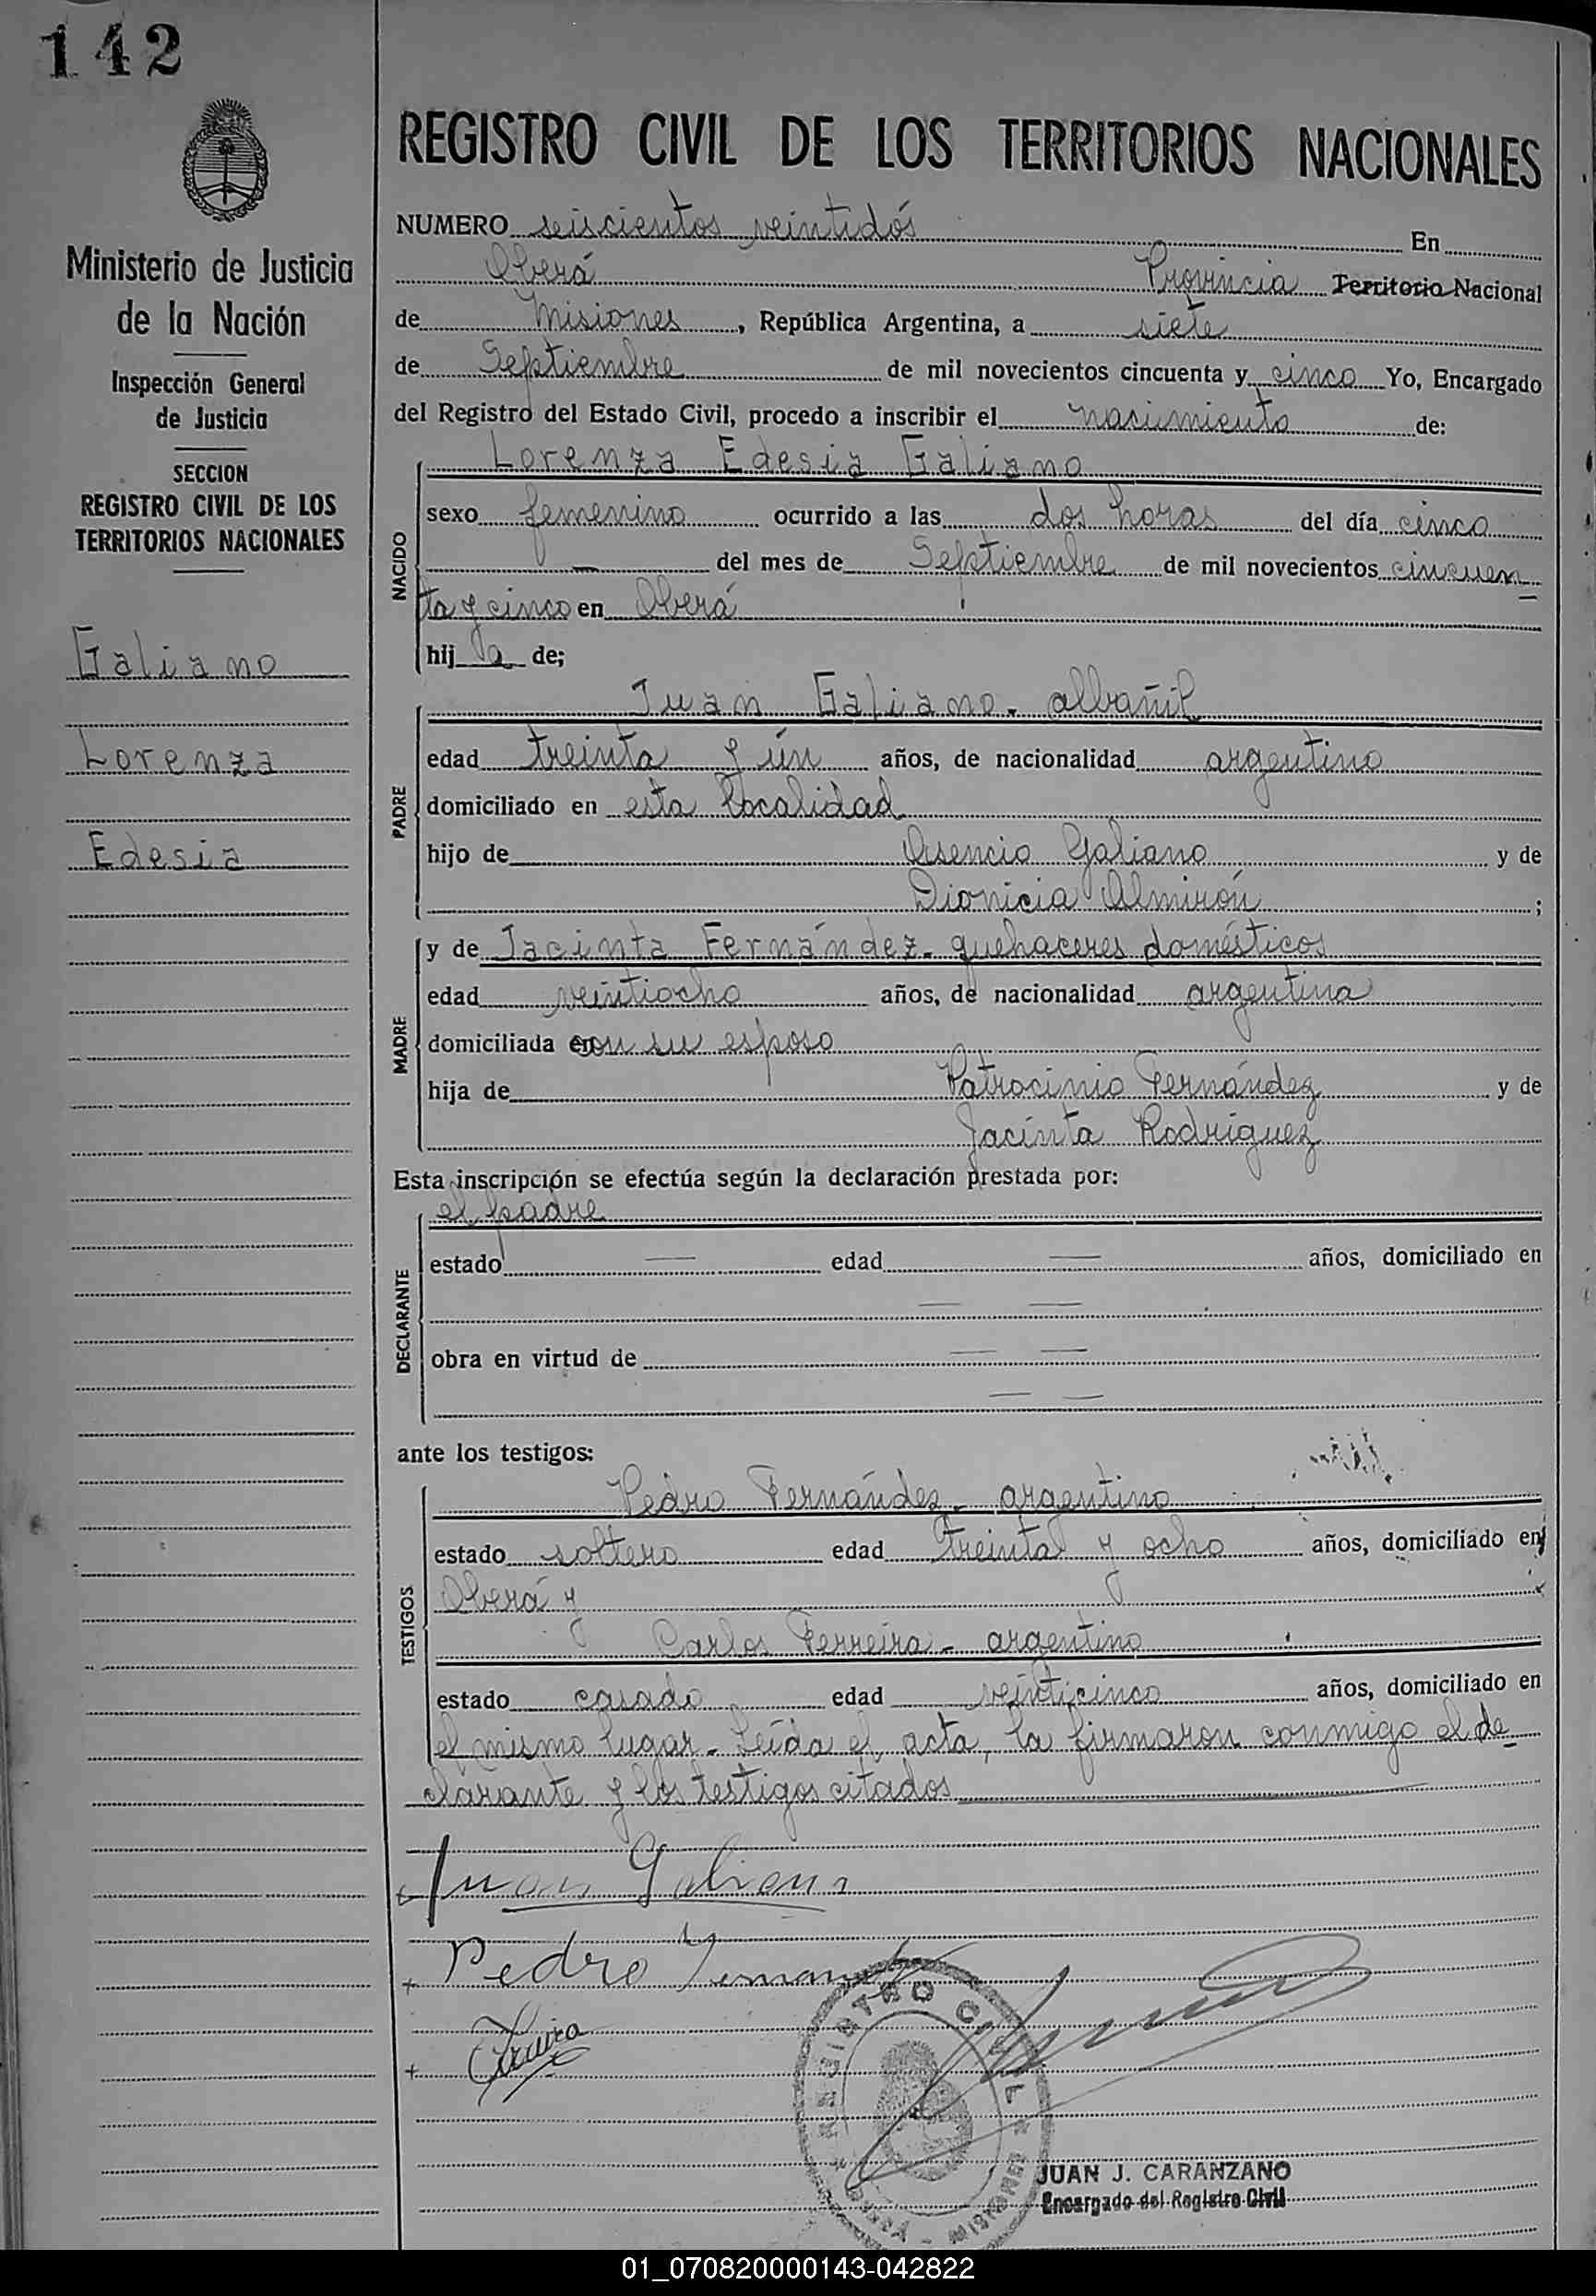 142
Ministerio de Justicia
de la Nación
Inspección General
de Justicia
SECCION
REGISTRO CIVIL DE LOS
TERRITORIOS NACIONALES
Galiano
Lorenza
Edesia
REGISTRO CIVIL DE LOS TERRITORIOS NACIONALES
NUMERO seiscientos veintidós En
Oberá Provincia Territorio Nacional
de Misiones, República Argentina, a siete
de Septiembre de mil novecientos cincuenta y cinco Yo, Encargado
del Registro del Estado Civil, procedo a inscribir el nacimiento de:
NACIDO
Lorenza Edesia Galiano
sexo femenino ocurrido a las dos horas del día cinco
— del mes de Septiembre de mil novecientos cincuen
ta y cinco en Oberá
hija de;
PADRE
Juan Galiano - albañil
edad treinta y ún años, de nacionalidad argentino
domiciliado en esta localidad
hijo de Asencio Galiano y de
Dionicia Almirón ;
MADRE
y de Jacinta Fernández - quehaceres domésticos
edad veintiocho años, de nacionalidad argentina
domiciliada con su esposo
hija de Patrocinio Fernández y de
Jacinta Rodríguez
Esta inscripción se efectúa según la declaración prestada por:
DECLARANTE
el padre
estado — edad — años, domiciliado en
— —
obra en virtud de — —
— —
ante los testigos:
TESTIGOS
Pedro Fernández - argentino
estado soltero edad treinta y ocho años, domiciliado en
Oberá y
Carlos Ferreira - argentino
estado casado edad veinticinco años, domiciliado en
el mismo lugar - Leída el acta, la firmaron conmigo el de
clarante y los testigos citados
Juan Galiano
Pedro Fernandez
REGISTRO CIVIL
MISIONES
JUAN J. CARANZANO
Encargado del Registro Civil
01_070820000143-042822